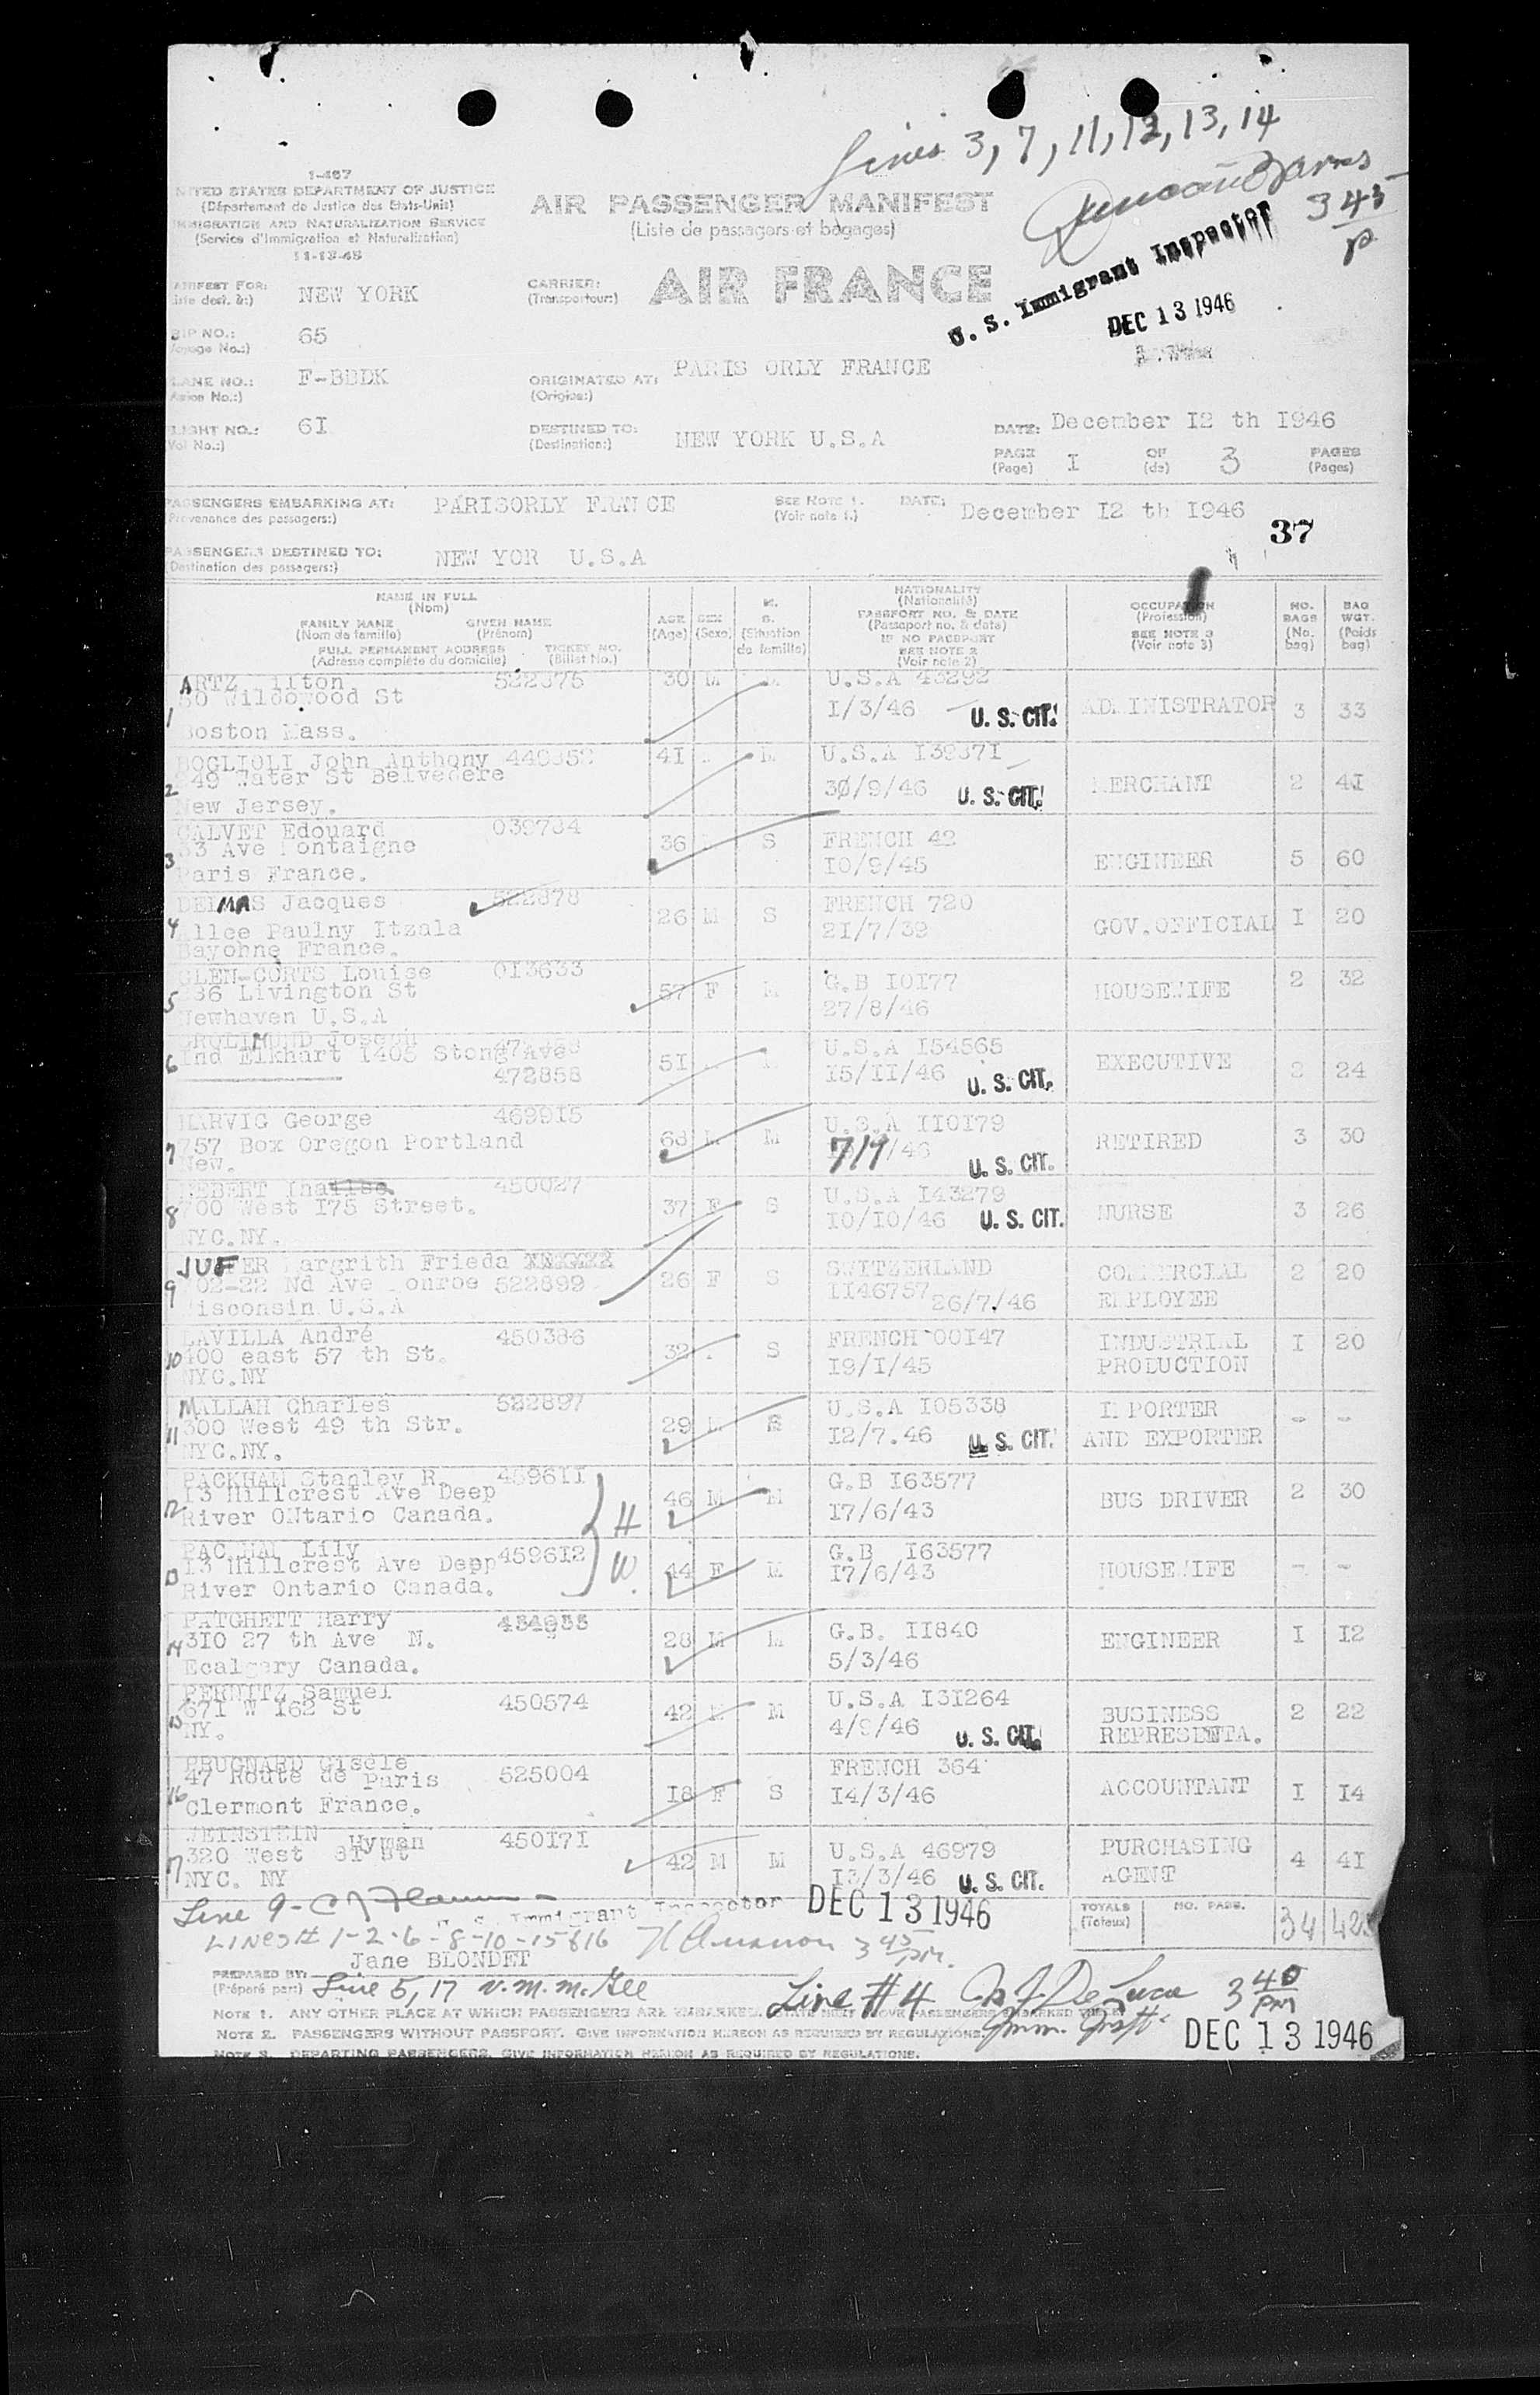 Lines 3, 7, 11, 12, 13, 14
3 45
P
1-467
NITED STATES DEPARTMENT OF JUSTICE
(Département de Justice des Etats-Unis)
IMMIGRATION AND NATURALIZATION SERVICE
(Service d'Immigration et Naturalisation)
11-13-45
AIR PASSENGER MANIFEST
(Liste de passagers et bagages)
U. S. Immigrant Inspector
DEC 13 1946
NEW YORK
CARRIER:
(Transporteur:)
AIR FRANCE
65
F-BBDK
ORIGINATED AT: PARIS ORLY FRANCE
(Origine:)
6I
DESTINED TO: NEW YORK U.S.A
(Destination:)
DATE: December I2 th I946
PAGE I OF 3 PAGES
(Page) (de) (Pages)
PASSENGERS EMBARKING AT: PARISORLY FRANCE
(Provenance des passagers:)
SEE NOTE 1. DATE: December I2 th I946
(Voir note 1.)
37
PASSENGERS DESTINED TO: NEW YOR U.S.A
(Destination des passagers:)
NAME IN FULL
(Nom)
FAMILY NAME GIVEN NAME
(Nom de famille) (Prénom)
FULL PERMANENT ADDRESS TICKET NO.
(Adresse complète du domicile) (Billet No.)
AGE
(Age)
SEX
(Sexe)
M.
S.
(Situation
de famille)
NATIONALITY
(Nationalité)
PASSPORT NO. & DATE
(Passport no. & date)
IF NO PASSPORT
SEE NOTE 2
(Voir note 2)
OCCUPATION
(Profession)
SEE NOTE 3
(Voir note 3)
NO.
BAGS
(No.
bag)
BAG
WGT.
(Poids
bag)
ARTZ 522875 30 M U.S.A 43292
1 St I/3/46 U. S. CIT. ADMINISTRATOR 3 33
Boston Mass.
BOGLIOLI John Anthony 4I M U.S.A I3937I
2 49 Water St Belvedere 30/9/46 U. S. CIT. MERCHANT 2 4I
New Jersey.
CALVET Edouard 039784 36 S FRENCH 42
3 33 Ave Montaigne I0/9/45 ENGINEER 5 60
Paris France.
DELMAS Jacques 522878 26 M S FRENCH 720
4 Allee Paulny Itzala 2I/7/39 GOV.OFFICIAL I 20
Bayonne France.
GLEN-CORTS Louise 0I3633 57 F M G.B I0I77
5 Livington St 27/8/46 HOUSEWIFE 2 32
Newhaven U.S.A
GROLIMUND Joseph 5I U.S.A I54565
6 Ind Elkhart I405 Stong Ave I5/II/46 U. S. CIT. EXECUTIVE 2 24
472858
HARVIG George 4699I5 68 M M U.S.A II0I79
7 757 Box Oregon Portland 7/9/46 U. S. CIT. RETIRED 3 30
New.
HEBERT 450027 37 F S U.S.A I43279
8 700 West I75 Street. I0/I0/46 U. S. CIT. NURSE 3 26
NYC.NY.
JUFFER Margrith Frieda 26 F S SWITZERLAND COMMERCIAL 2 20
9 02-22 Nd Ave Monroe 522899 II46757 26/7/46 EMPLOYEE
Wisconsin U.S.A
LAVILLA André 450386 32 S FRENCH 00I47 INDUSTRIAL I 20
10 400 east 57 th St. I9/I/45 PRODUCTION
NYC.NY
MALLAH Charles 522897 29 M S U.S.A I05338 IMPORTER - -
11 300 West 49 th Str. I2/7.46 U. S. CIT. AND EXPORTER
NYC.NY.
PACKHAM Stanley R. 4596II H 46 M M G.B I63577
12 I3 Hillcrest Ave Deep I7/6/43 BUS DRIVER 2 30
River ONtario Canada.
PACKHAM Lily 4596I2 W. 44 F M G.B I63577
13 I3 Hillcrest Ave Depp I7/6/43 HOUSEWIFE - -
River Ontario Canada.
PATCHETT Harry 28 M M G.B. II840
14 3I0 27 th Ave N. 5/3/46 ENGINEER I I2
Ecalgary Canada.
PERNITZ Samuel 450574 42 M M U.S.A I3I264 BUSINESS 2 22
15 67I W I62 St 4/9/46 U. S. CIT. REPRESENTA.
NY.
PRUGNARD Gisèle 525004 I8 F S FRENCH 364
16 47 Route de Paris I4/3/46 ACCOUNTANT I I4
Clermont France.
WEINSTEIN Hyman 450I7I 42 M M U.S.A 46979 PURCHASING 4 4I
17 320 West 8I St I3/3/46 U. S. CIT. AGENT
NYC. NY
Line 9-
U. S. Immigrant Inspector DEC 13 1946
TOTALS NO. PASS. 34
(Totaux)
LINES # 1-2-6-8-10-15 & 16 3 45 PM.
Jane BLONDET
PREPARED BY:
(Préparé par:) Line 5, 17 V. M. McGee
Line #4 De Luca 3 40 PM
Imm. Insp.
DEC 13 1946
NOTE 1. ANY OTHER PLACE AT WHICH PASSENGERS ARE EMBARKED.
NOTE 2. PASSENGERS WITHOUT PASSPORT. GIVE INFORMATION HEREON AS REQUIRED BY REGULATIONS.
NOTE 3. DEPARTING PASSENGERS. GIVE INFORMATION HEREON AS REQUIRED BY REGULATIONS.